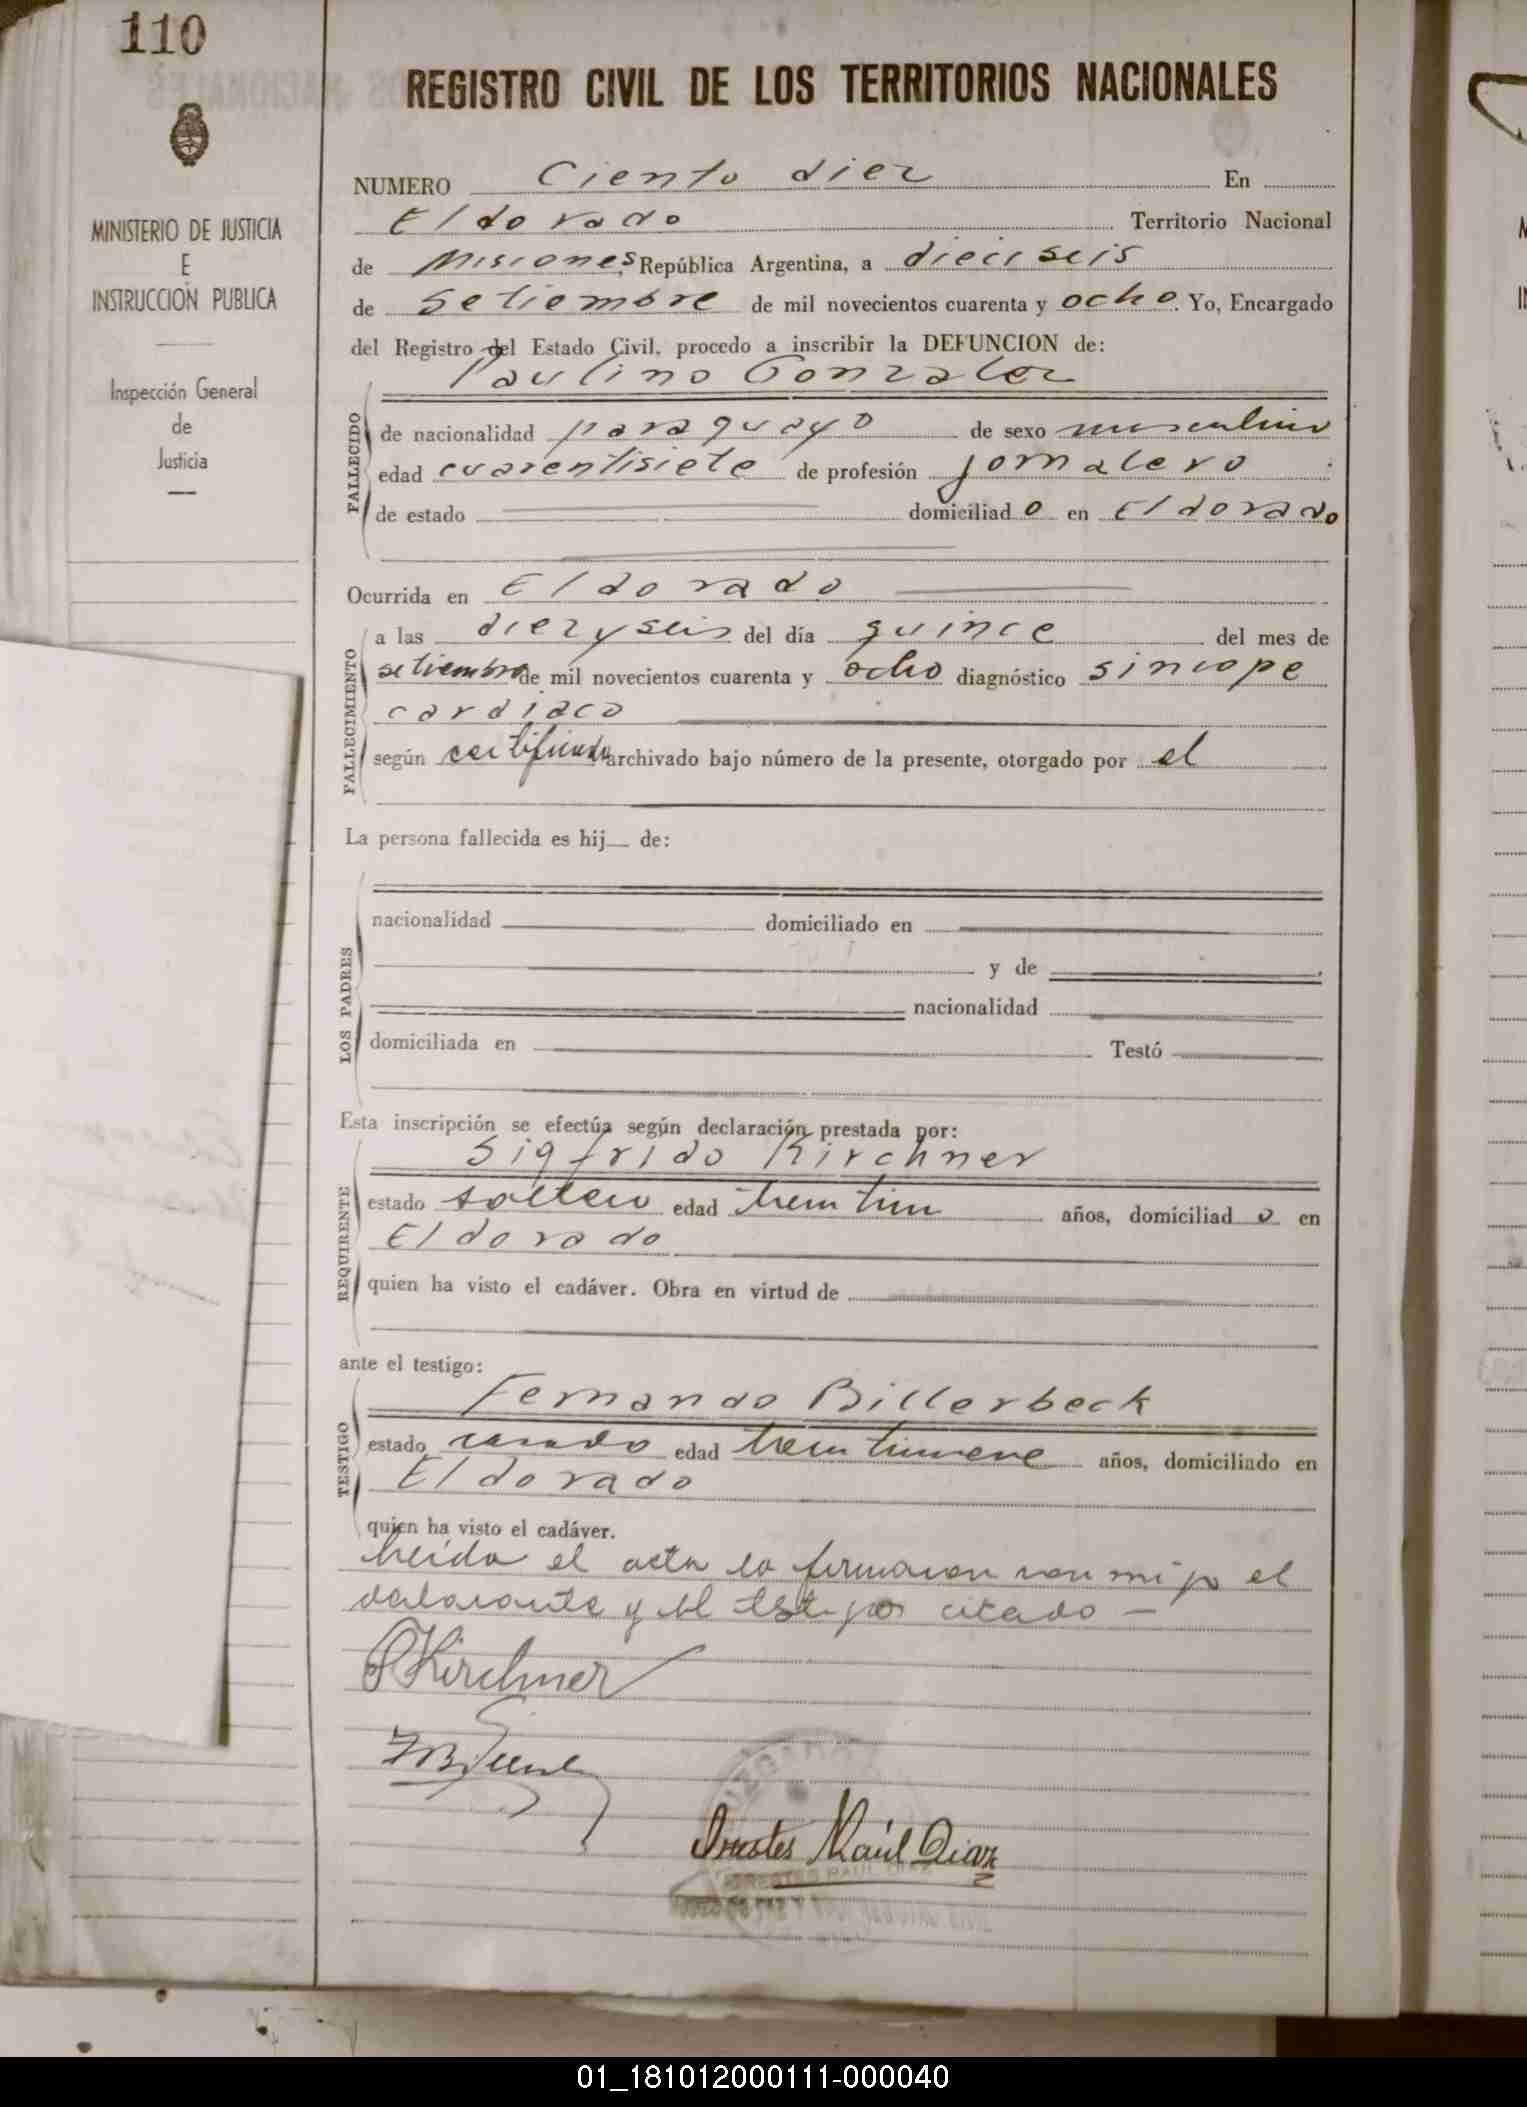 110
REGISTRO CIVIL DE LOS TERRITORIOS NACIONALES
MINISTERIO DE JUSTICIA
E
INSTRUCCION PUBLICA
Inspección General
de
Justicia
NUMERO Ciento diez En
Eldorado Territorio Nacional
de Misiones República Argentina, a dieciseis
de Setiembre de mil novecientos cuarenta y ocho. Yo, Encargado
del Registro del Estado Civil, procedo a inscribir la DEFUNCION de:
Paulino Gonzalez
FALLECIDO
de nacionalidad paraguayo de sexo masculino
edad cuarentisiete de profesión jornalero
de estado domiciliado en Eldorado
Ocurrida en Eldorado
FALLECIMIENTO
a las diez y seis del día quince del mes de
setiembre de mil novecientos cuarenta y ocho diagnóstico sincope
cardiaco
según certificado archivado bajo número de la presente, otorgado por el
La persona fallecida es hij de:
LOS PADRES
nacionalidad domiciliado en
y de
nacionalidad
domiciliada en Testó
Esta inscripción se efectúa según declaración prestada por:
Sigfrido Kirchner
REQUIRENTE
estado soltero edad años, domiciliado en
Eldorado
quien ha visto el cadáver. Obra en virtud de
ante el testigo:
Fernando Billerbeck
TESTIGO
estado casado edad treintinueve años, domiciliado en
Eldorado
quien ha visto el cadáver.
Leída el acta la firmaron conmigo el
declarante y el testigo citado —
Kirchner
Orestes Raúl Diaz
01_181012000111-000040